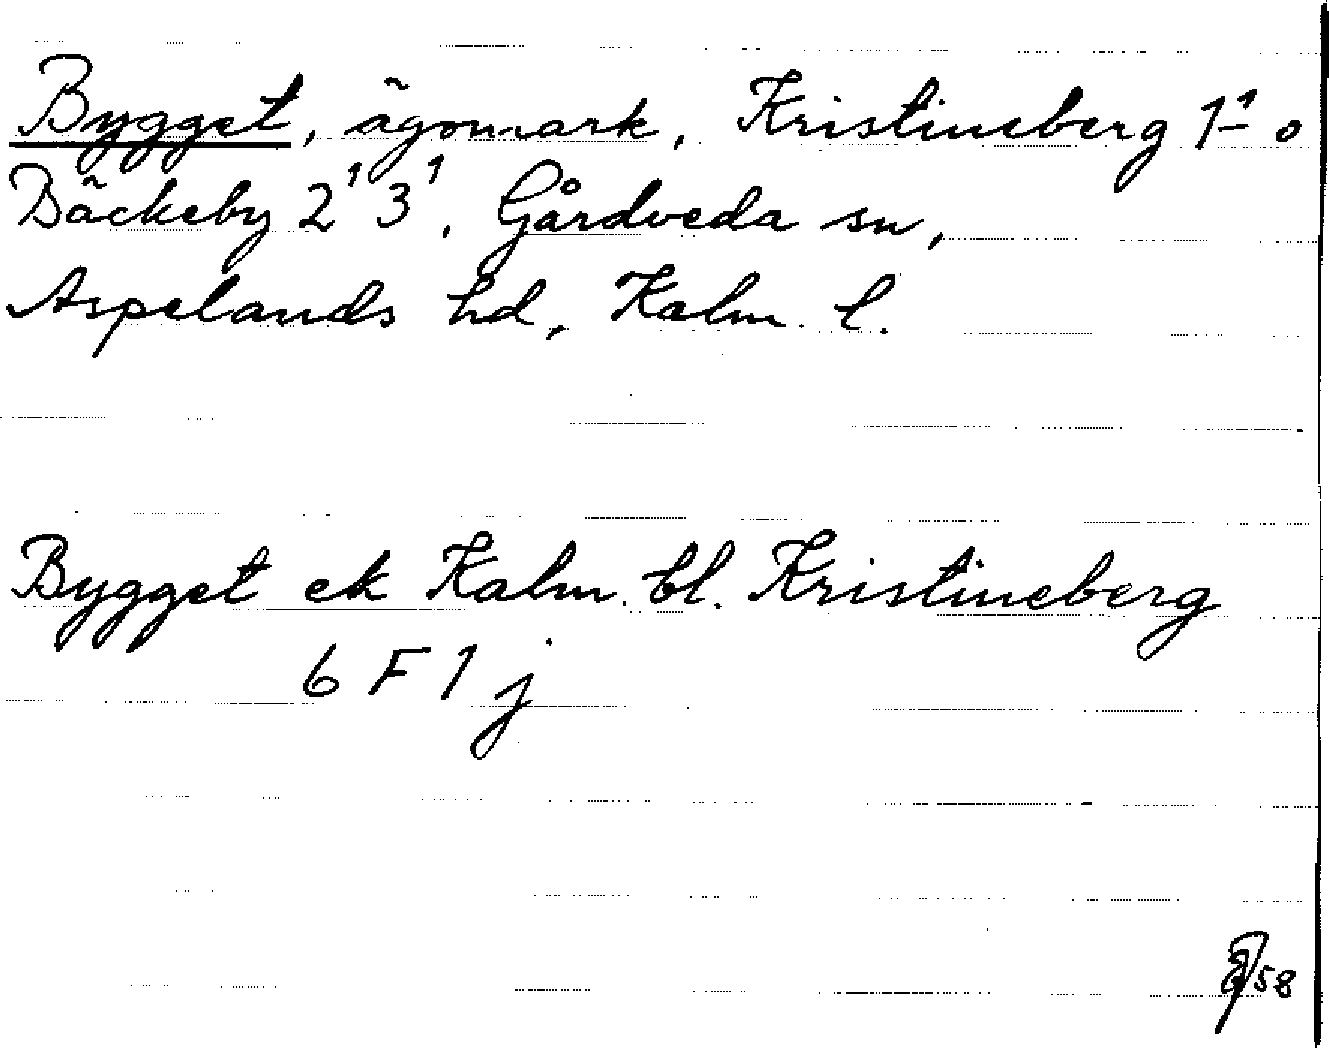 Bygget, ägomark, Kristineberg 1¹ o
Bäckeby 2¹ 3¹, Gårdveda sn,
Aspelands hd, Kalm. l.
Bygget ek Kalm. bl. Kristineberg
6 F 1 j
58